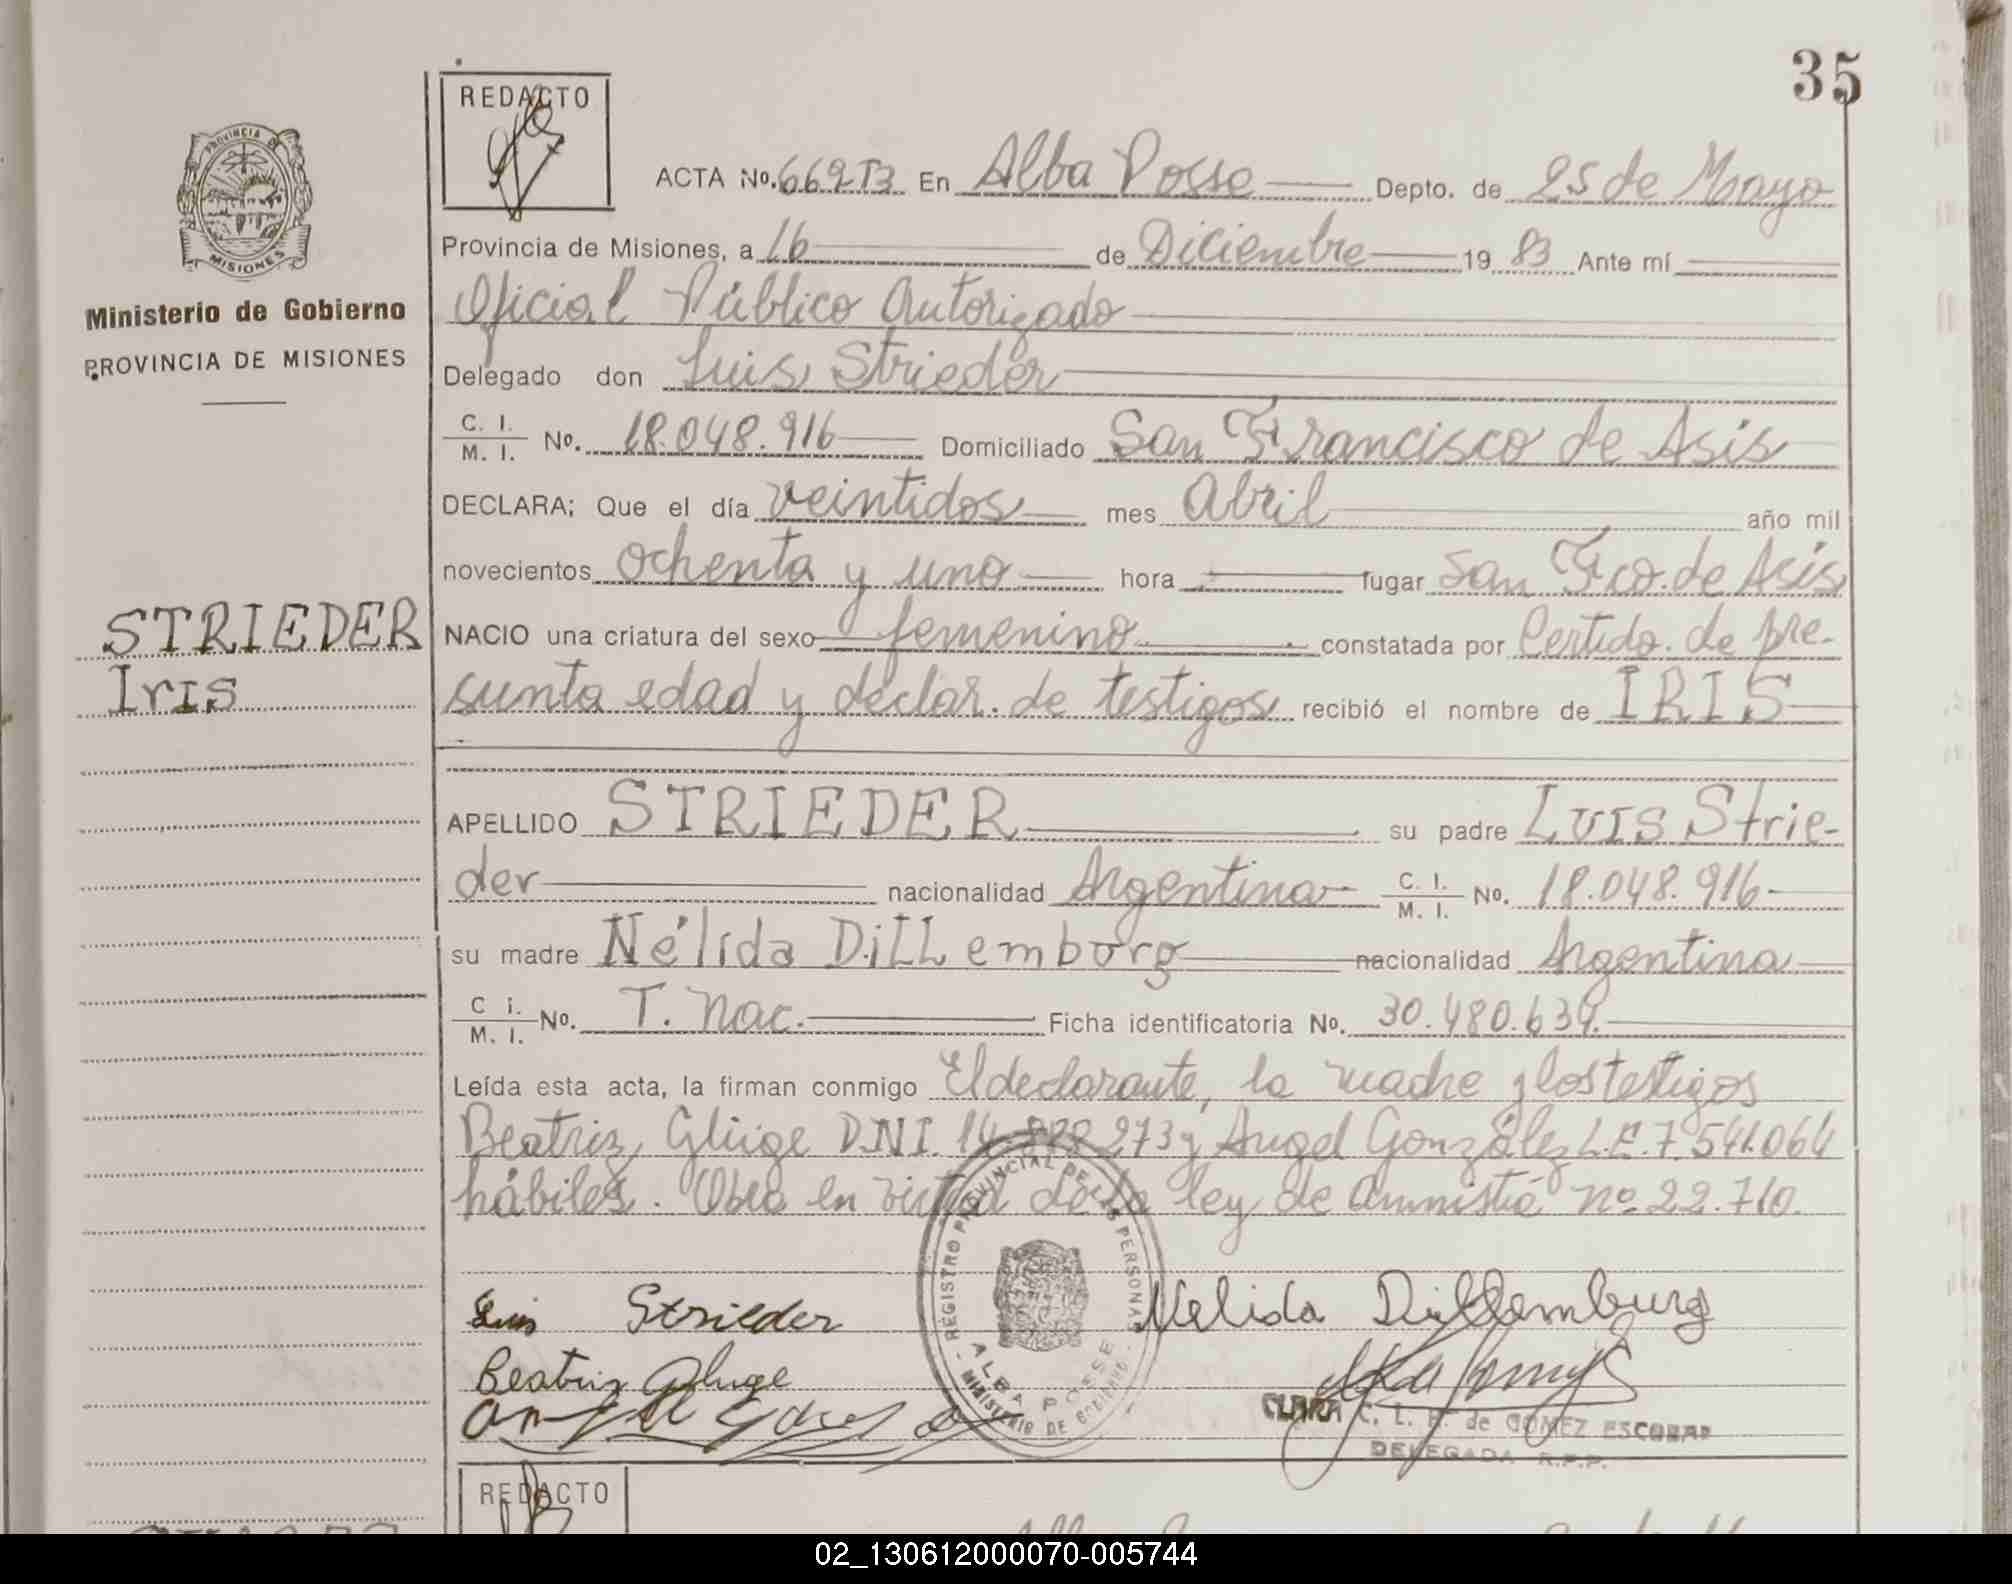 35
REDACTO
PROVINCIA DE
MISIONES
ACTA No. 669T3 En Alba Posse Depto. de 25 de Mayo
Provincia de Misiones, a 16 de Diciembre 19 83 Ante mí
Ministerio de Gobierno
PROVINCIA DE MISIONES
Oficial Público Autorizado
Delegado don Luis Strieder
C. I. / M. I. No. 18.048.916 Domiciliado San Francisco de Asis
DECLARA; Que el día veintidos mes Abril año mil
novecientos ochenta y uno hora lugar San Fco. de Asis
STRIEDER
Iris
NACIO una criatura del sexo femenino constatada por Certido. de pre-
sunta edad y declar. de testigos recibió el nombre de IRIS
APELLIDO STRIEDER su padre Luis Strie-
der nacionalidad Argentina C. I. / M. I. No. 18.048.916
su madre Nélida DiLLemborg nacionalidad Argentina
C i. / M. I. No. T. Nac. Ficha identificatoria No. 30.480.634.
Leída esta acta, la firman conmigo El declarante, la madre y los testigos
Beatriz Glüge D.N.I. 14. 273 y Angel González L.E. 7.541.064
hábiles. Obra en virtud de la ley de amnistía nº 22.710.
REGISTRO PROVINCIAL DE LAS PERSONAS
ALBA POSSE
MINISTERIO DE GOBIERNO
Luis Strieder Nelida Dillemburg
Beatriz Gluge
CLARA C. L. P. de GOMEZ ESCOBAR
DELEGADA R.P.P.
REDACTO
02_130612000070-005744